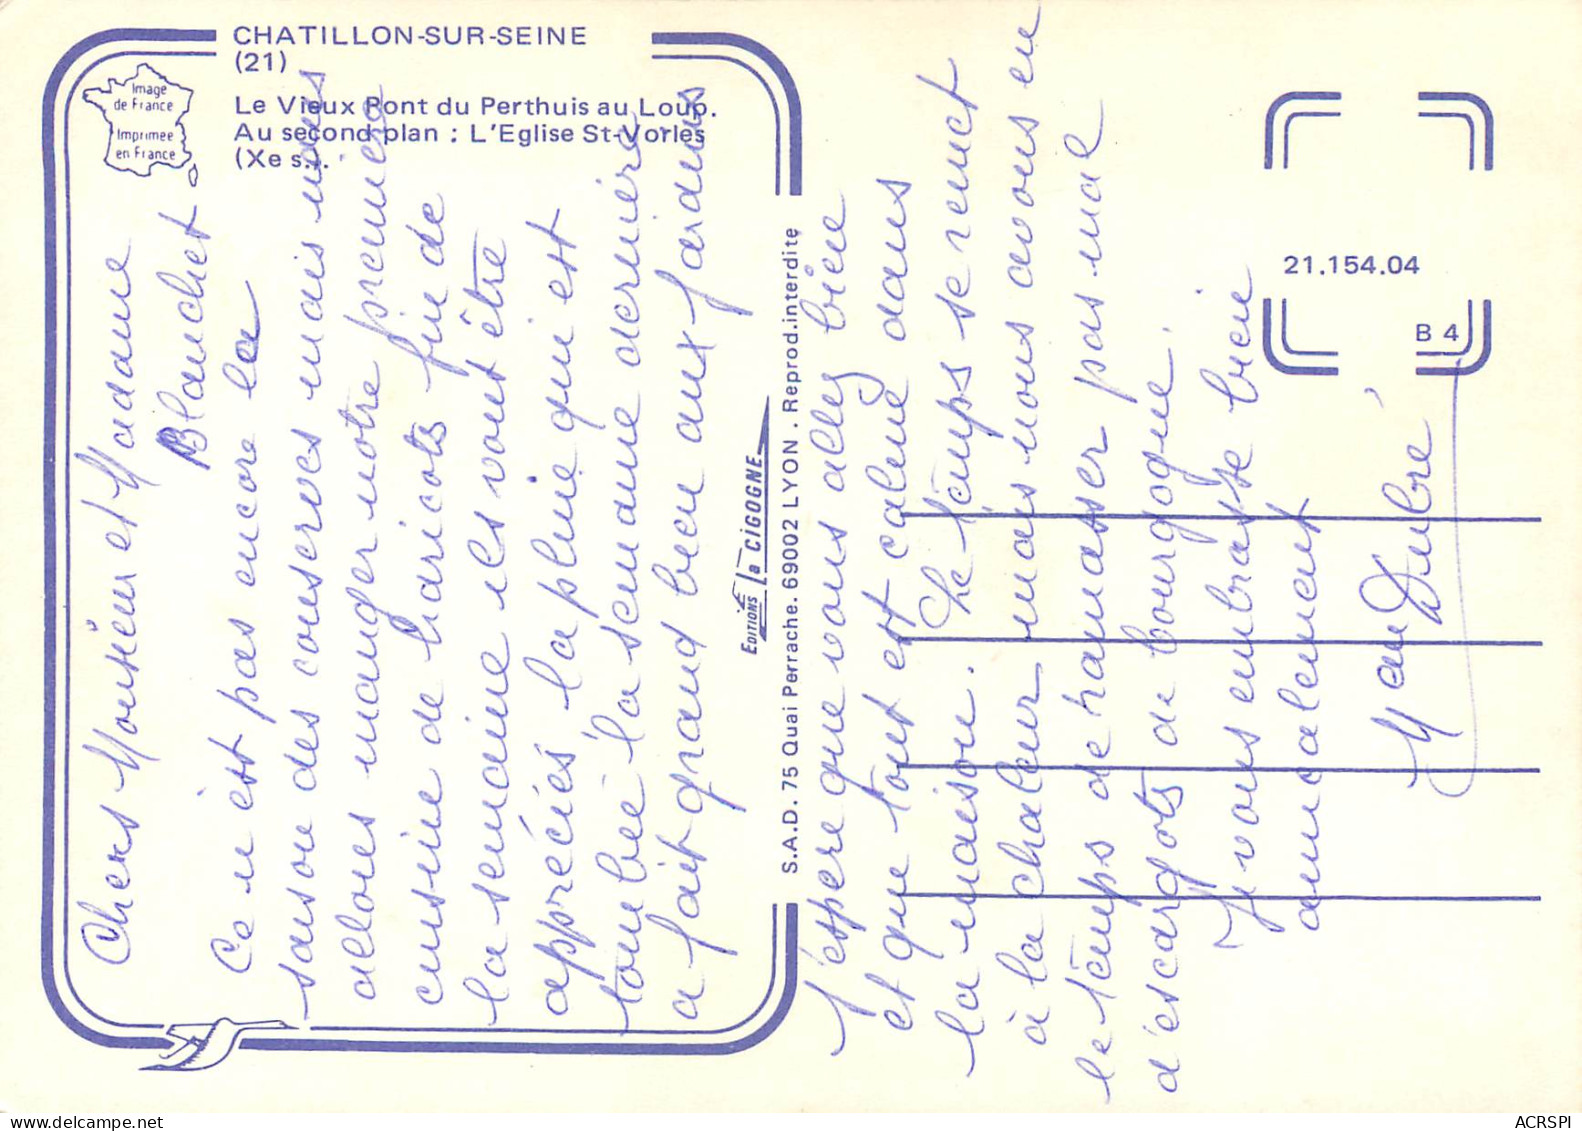 CHATILLON-SUR-SEINE
(21)
Le Vieux Pont du Perthuis au Loup.
Au second plan : L'Eglise St-Vorles
(Xe s.).
Image
de France
Imprimée
en France
Chers Monsieur et Madame
Blanchet.
Ce n'est pas encore la
saison des conserves mais nous
allons manger notre première
cuisine de haricots fin de
la semaine ils vont être
appréciés la pluie qui est
tombée la semaine dernière
a fait grand bien aux jardins
EDITIONS la CIGOGNE
S.A.D. 75 Quai Perrache. 69002 LYON . Reprod.interdite
J'espère que vous allez bien
et que tout est calme dans
la maison. Le temps se remet
à la chaleur mais nous avons eu
le temps de ramasser pas mal
d'escargots de bourgogne.
Je vous embrasse bien
amicalement
Dubré
21.154.04
B 4
ACRSPI